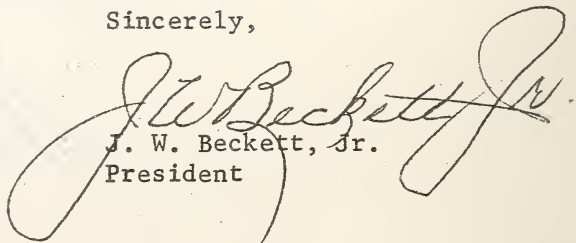 Sincerely,
J W Beckett Jr.
J. W. Beckett, Jr.
President